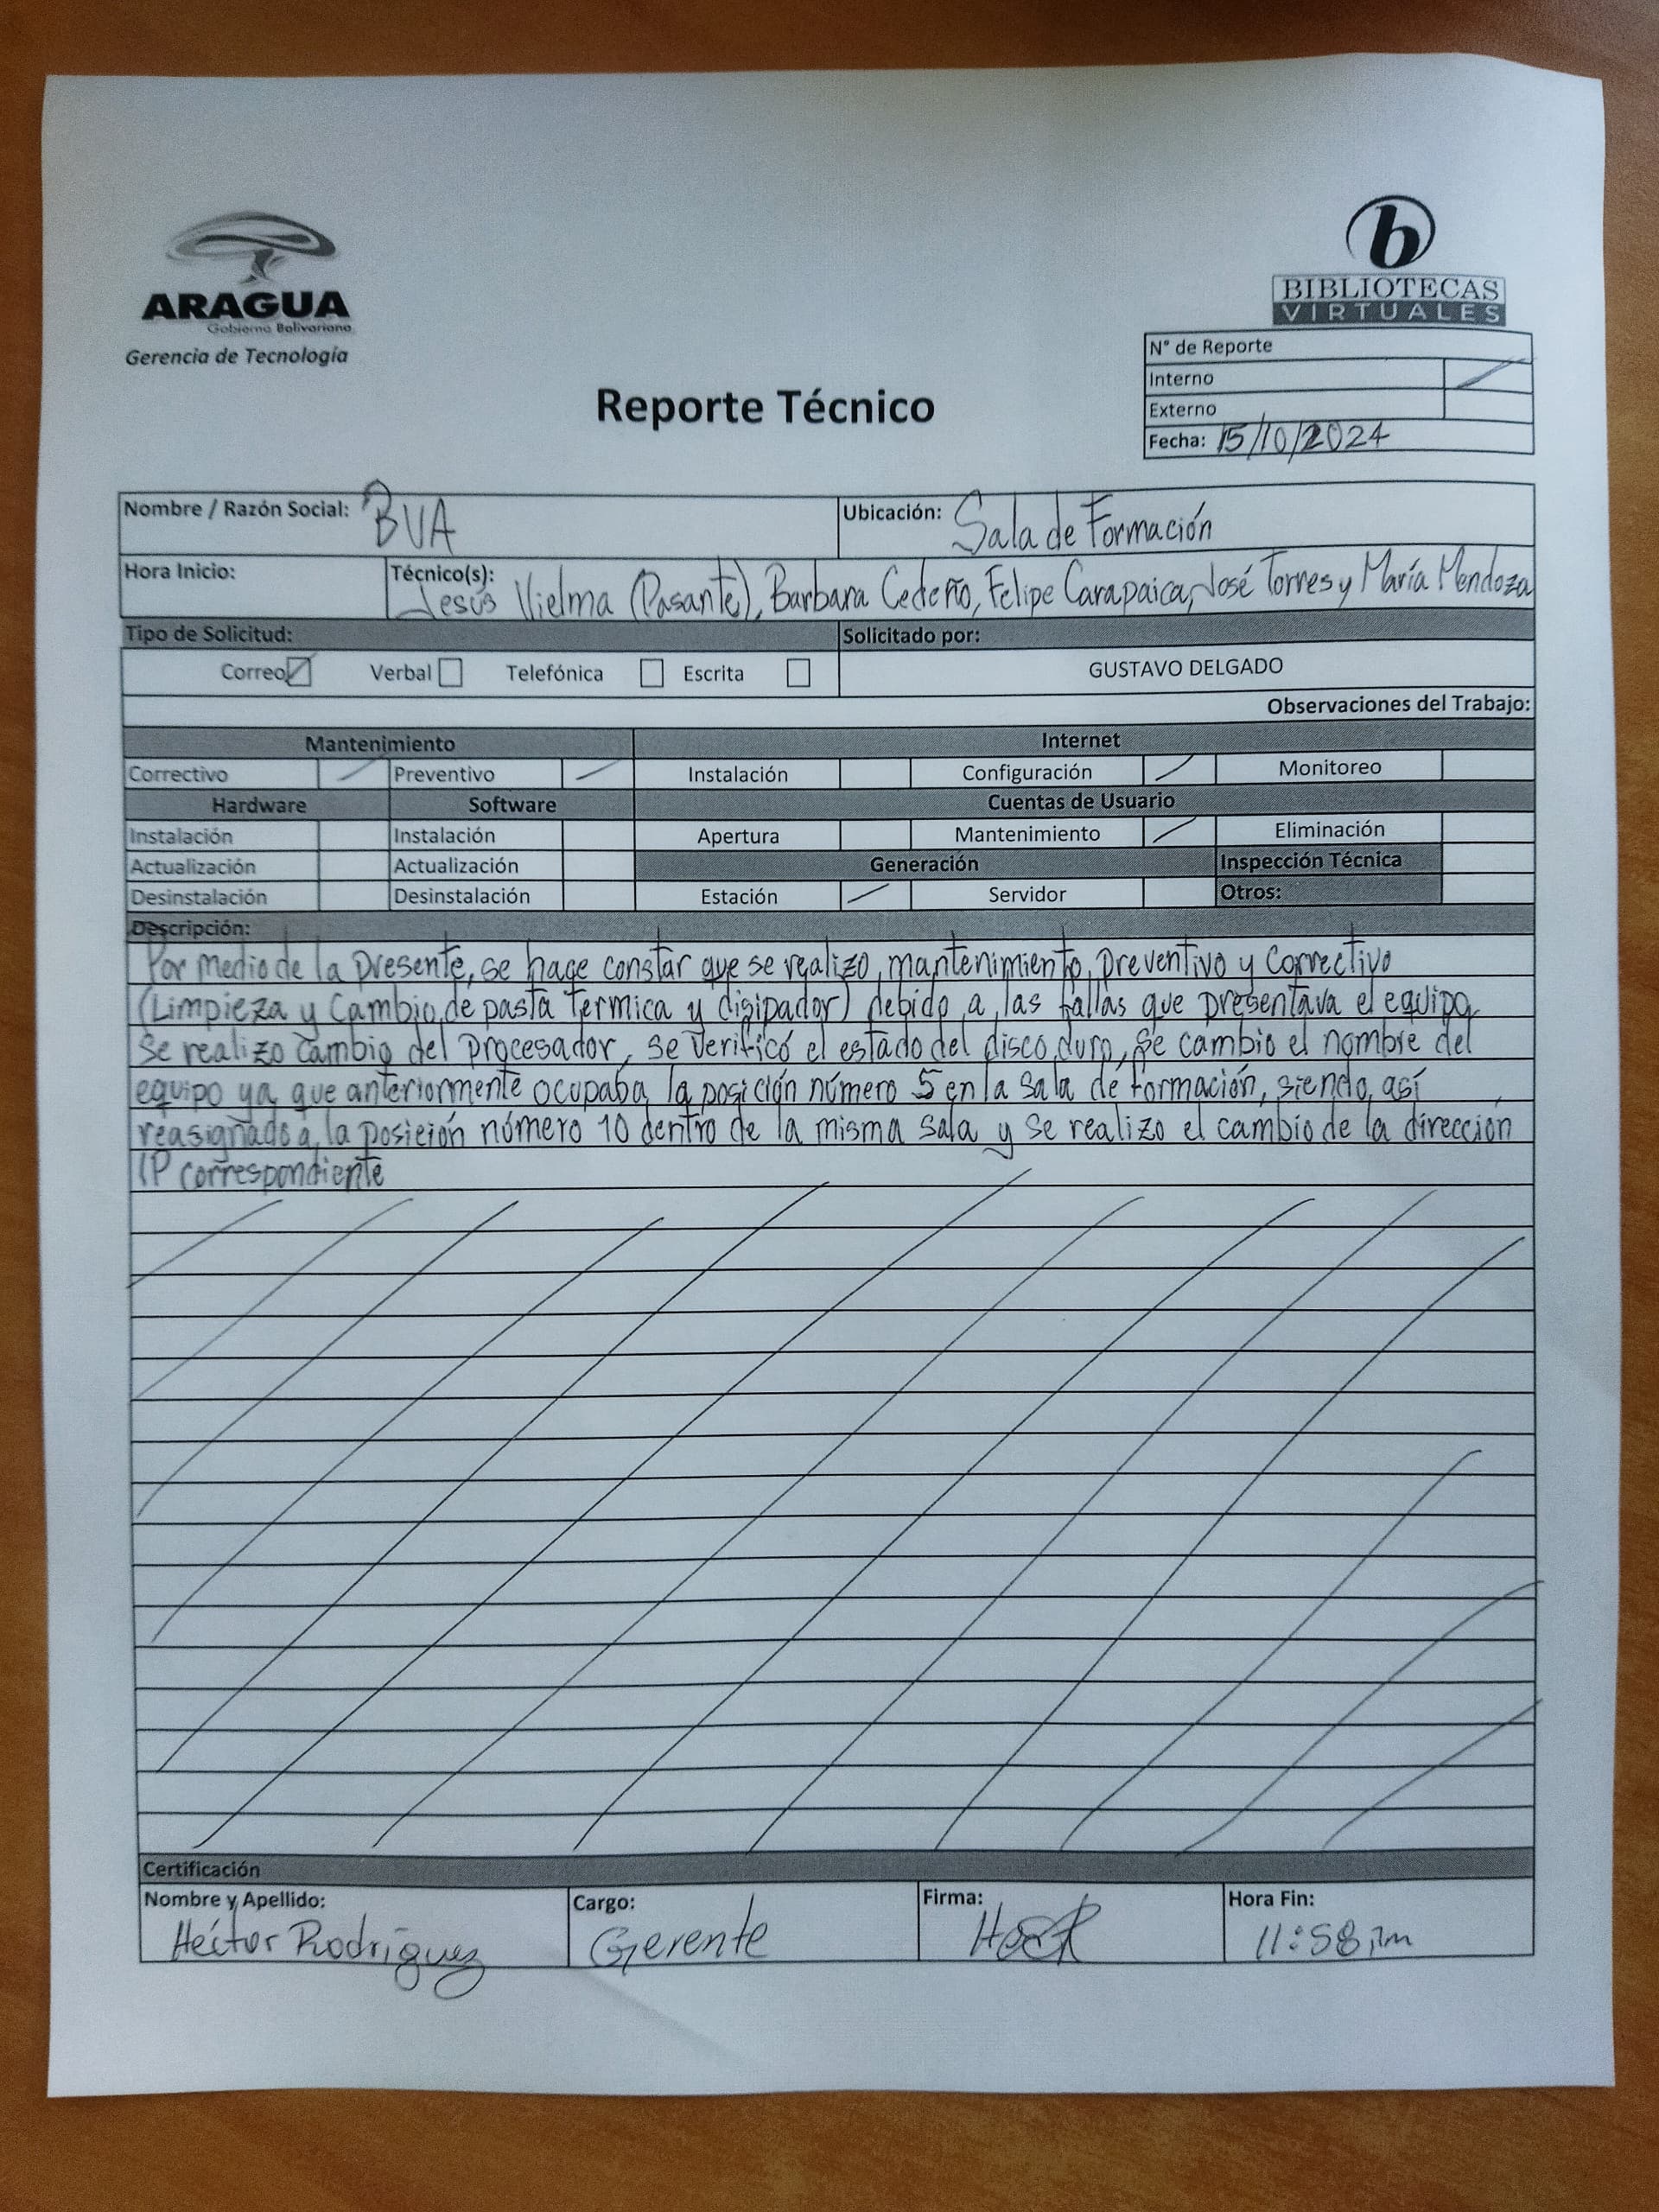 ARAGUA
Gobierno Bolivariano
Gerencia de Tecnología
b
BIBLIOTECAS
VIRTUALES
N° de Reporte
Interno
Externo
Fecha: 15/10/2024
Reporte Técnico
Nombre / Razón Social: BVA Ubicación: Sala de Formación
Hora Inicio: Técnico(s): Jesús Vielma (Pasante), Barbara Cedeño, Felipe Carapaica, José Torres y María Mendoza
Tipo de Solicitud: Solicitado por:
Correo Verbal Telefónica Escrita GUSTAVO DELGADO
Observaciones del Trabajo:
Mantenimiento Internet
Correctivo Preventivo Instalación Configuración Monitoreo
Hardware Software Cuentas de Usuario
Instalación Instalación Apertura Mantenimiento Eliminación
Actualización Actualización Generación Inspección Técnica
Desinstalación Desinstalación Estación Servidor Otros:
Descripción:
Por medio de la presente, se hace constar que se realizo mantenimiento preventivo y correctivo
(Limpieza y Cambio de pasta termica y disipador) debido a las fallas que presentava el equipo.
Se realizo cambio del procesador, se verificó el estado del disco duro, se cambio el nombre del
equipo ya que anteriormente ocupaba la posición número 5 en la sala de formación, siendo así
reasignado a la posición número 10 dentro de la misma sala y se realizo el cambio de la dirección
IP correspondiente
Certificación
Nombre y Apellido: Héctor Rodríguez Cargo: Gerente Firma: Hora Fin: 11:58